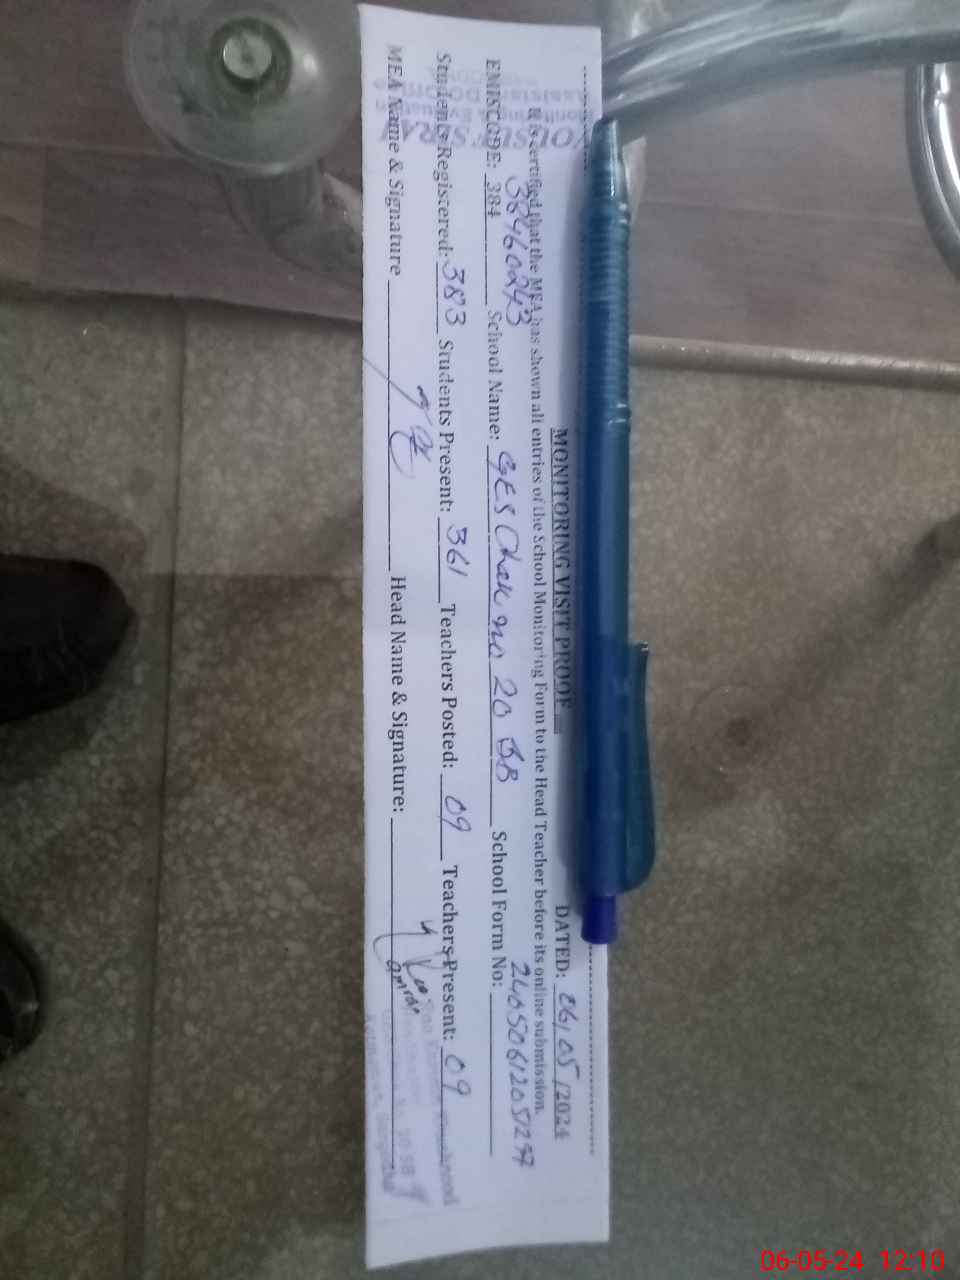 MONITORING VISIT PROOF DATED: 06/05/2024
It is certified that the MEA has shown all entries of the School Monitoring Form to the Head Teacher before its online submission.
EMISCODE: 38460243 384 School Name: GES Chak no 20 SB School Form No: 24050612051297
Students Registered: 383 Students Present: 361 Teachers Posted: 09 Teachers Present: 09
MEA Name & Signature Head Name & Signature:
06-05-24 12:10